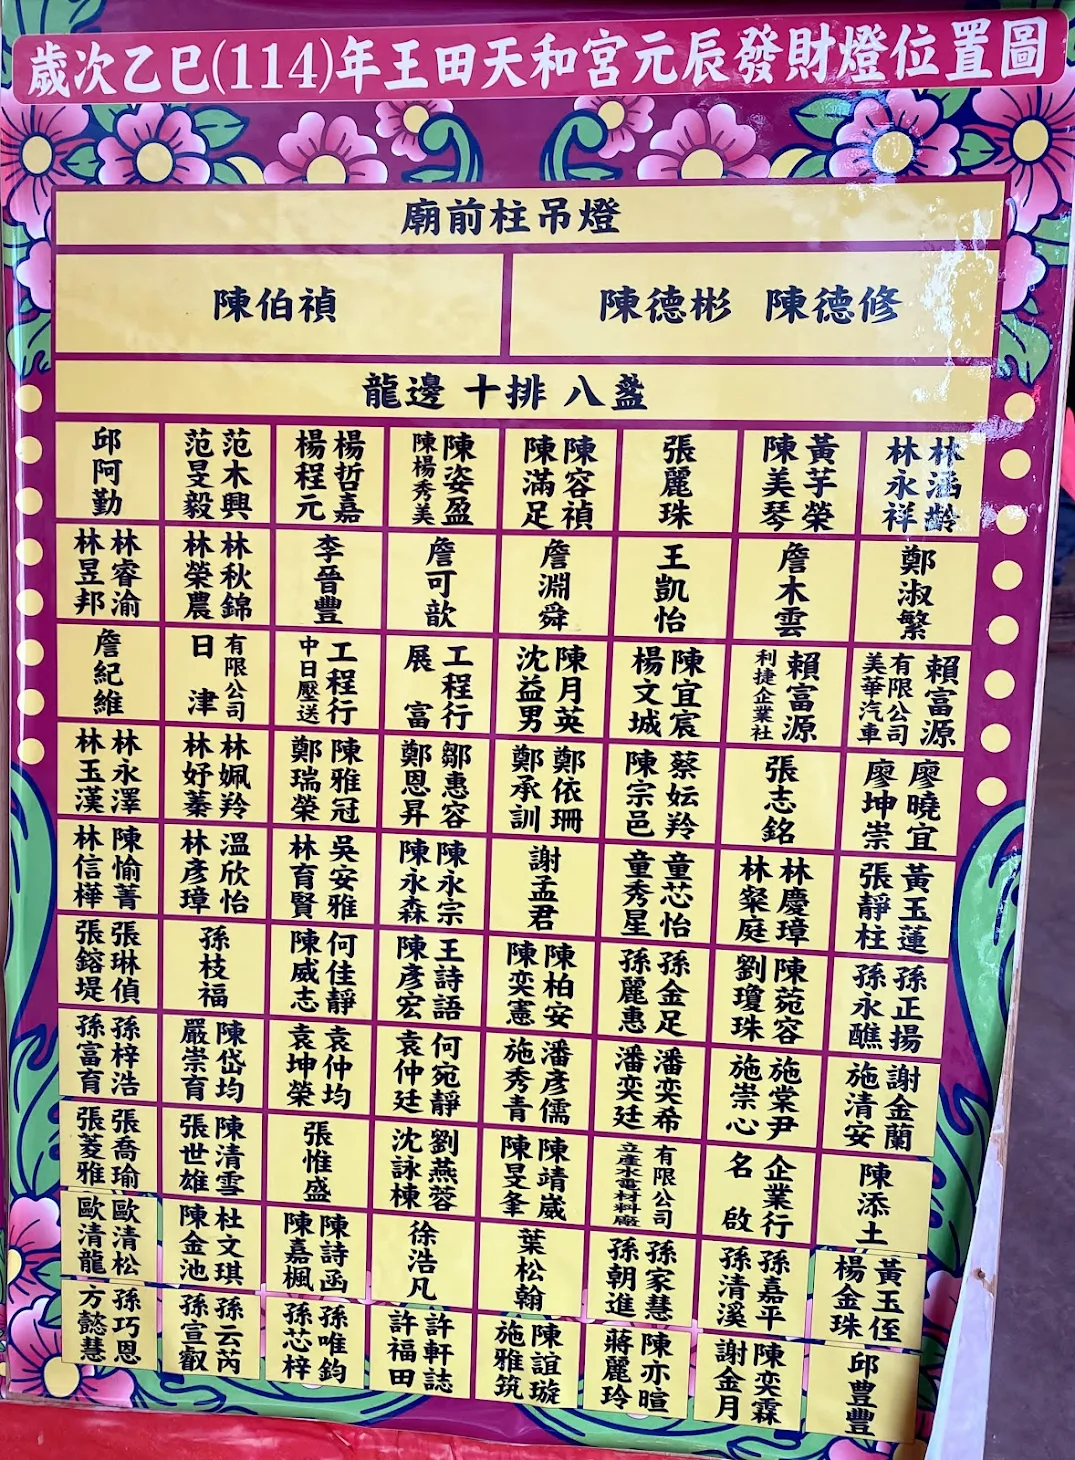 歲次乙巳(114)年王田天和宮元辰發財燈位置圖
廟前柱吊燈
陳德彬 陳德修
陳伯禎
龍邊 十排 八盞
林涵齡 林永祥
黃芋榮 陳美琴
張麗珠
陳容禎 陳滿足
陳姿盈 陳楊秀美
楊哲嘉 楊程元
范木興 范旻毅
邱阿勤
鄭淑繁
詹木雲
王凱怡
詹淵舜
詹可歆
李晉豐
林秋錦 林榮農
林睿渝 林昱邦
賴富源 美華汽車有限公司
賴富源 利捷企業社
陳宜宸 楊文城
陳月英 沈益男
展富工程行
中日壓送工程行
日津有限公司
詹紀維
廖曉宜 廖坤崇
張志銘
蔡妘羚 陳宗邑
鄭依珊 鄭承訓
鄒惠容 鄭恩昇
陳雅冠 鄭瑞榮
林姵羚 林妤蓁
林永澤 林玉漢
黃玉蓮 張靜柱
林慶璋 林粲庭
童芯怡 童秀星
謝孟君
陳永宗 陳永森
吳安雅 林育賢
溫欣怡 林彥璋
陳愉菁 林信樺
孫正揚 孫永醮
陳菀容 劉瓊珠
孫金足 孫麗惠
陳柏安 陳奕憲
王詩語 陳彥宏
何佳靜 陳威志
孫枝福
張琳偵 張鎔堤
謝金蘭 施清安
施棠尹 施崇心
潘奕希 潘奕廷
潘彥儒 施秀青
何宛靜 袁仲廷
袁仲均 袁坤榮
陳岱均 嚴崇育
孫梓浩 孫富育
陳添土
名啟企業行
立產水電材料廠有限公司
陳靖崴 陳旻夆
劉燕蓉 沈詠棟
張惟盛
陳清雪 張世雄
張喬瑜 張菱雅
黃玉侄 楊金珠
孫嘉平 孫清溪
孫家慧 孫朝進
葉松翰
徐浩凡
陳詩函 陳嘉楓
杜文琪 陳金池
歐清松 歐清龍
邱豊豐
陳奕霖 謝金月
陳亦暄 蔣麗玲
陳誼璇 施雅筑
許軒誌 許福田
孫唯鈞 孫芯梓
孫云芮 孫宣叡
孫巧恩 方懿慧